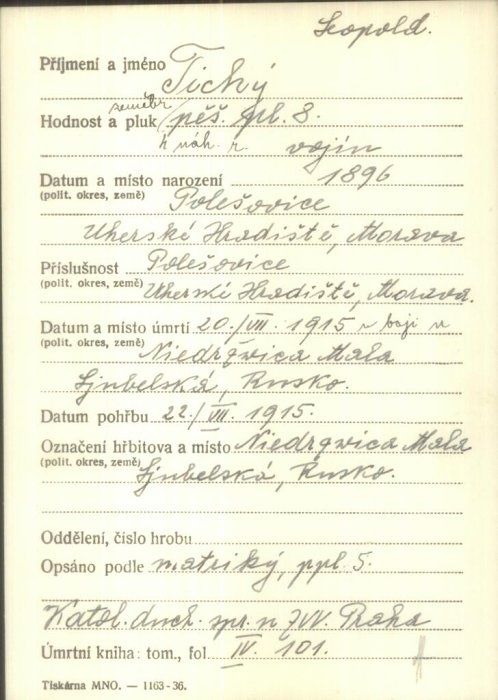 Leopold.
Příjmení a jméno Tichý
zeměbr.
Hodnost a pluk pěš. pl. 8.
k náh. r. vojín
Datum a místo narození 1896
(polit. okres, země) Polešovice
Uherské Hradiště, Morava
Příslušnost Polešovice
(polit. okres, země) Uherské Hradiště, Morava.
Datum a místo úmrtí 20./VII. 1915 v boji u
(polit. okres, země) Niedrzwica Mala
Ljubelská, Rusko.
Datum pohřbu 22./VII. 1915.
Označení hřbitova a místo Niedrzwica Mala
(polit. okres, země) Ljubelská, Rusko.
Oddělení, číslo hrobu
Opsáno podle matriky, ppl. 5.
Katol. duch. spr. n ZVV. Praha
Úmrtní kniha: tom., fol. IV. 101.
Tiskárna MNO. — 1163-36.